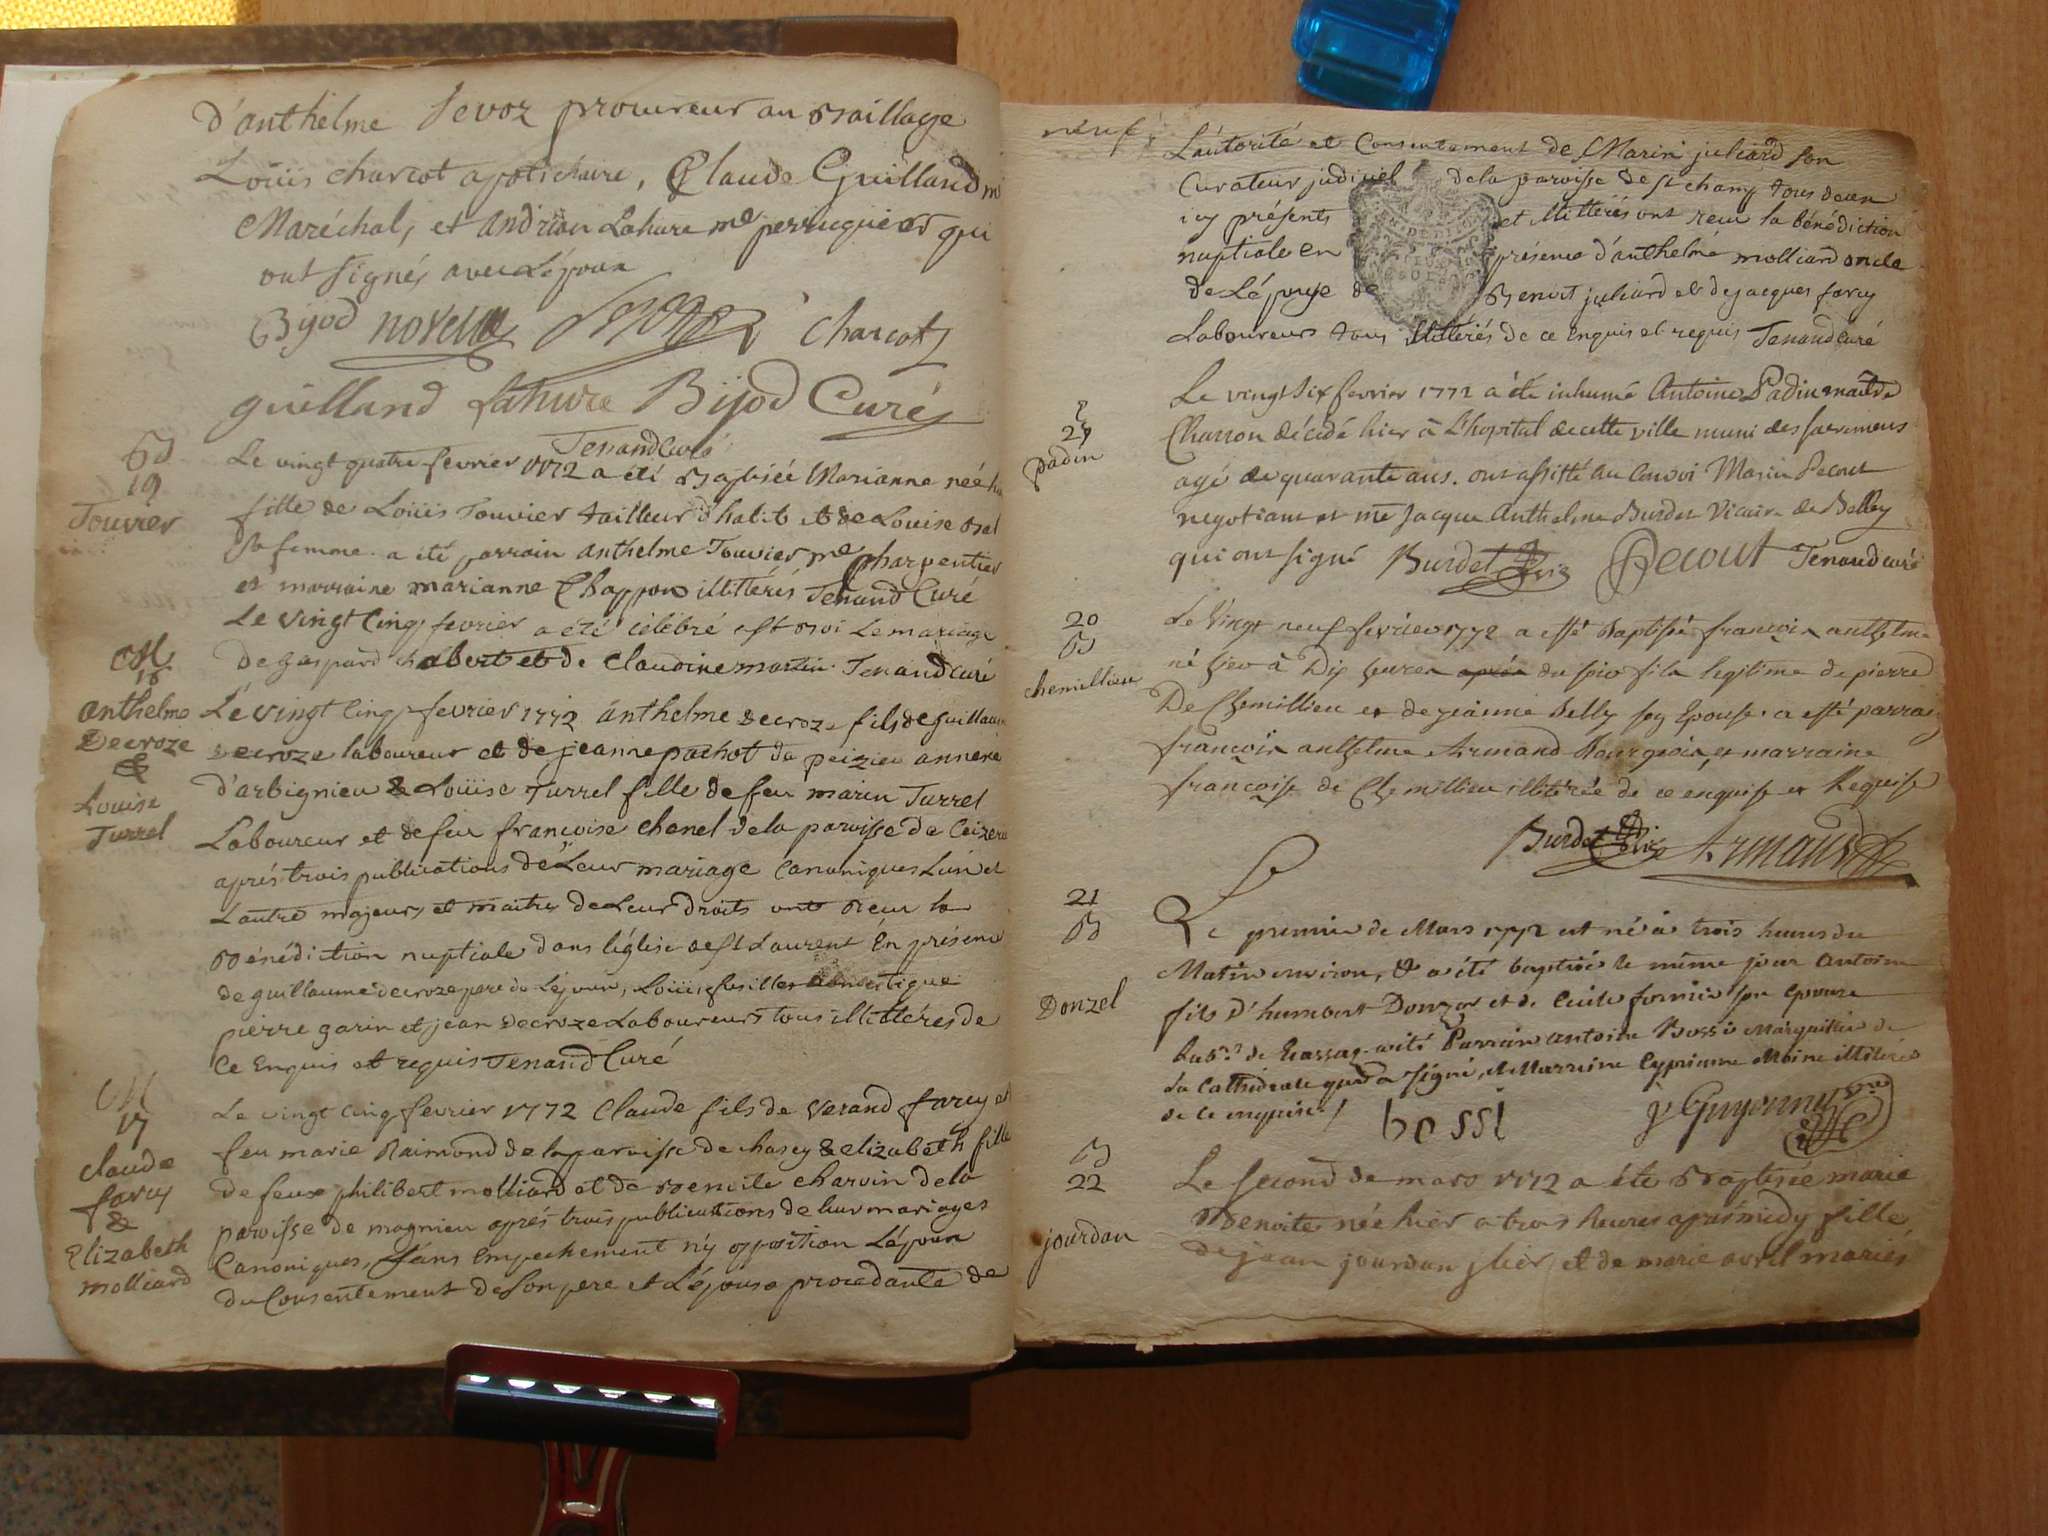 d'anthelme Sevoz procureur au Bailliage
Loüis charcot apotichaire, Claude Guilland m
Maréchal, et andrian Lahure me perruquier qui
ont signés avec Lépoux
Bijod noyelle charcot
guilland Lahure Bijod Curés
Tenand Curé
B
19
Touvier
Le vingt quatre fevrier 1772 a été Baptisée Marianne née
fille de Loüis Touvier tailleur d'habit et de Louise
sa femme. a été parrain anthelme Touvier me charpentier
et marraine marianne Chappou illitérés Tenand Curé
M
16
Le vingt cinq fevrier a été célébré Le mariage
de gaspard chabert et de claudine martin Tenand Curé
anthelme
Decroze
&
Louise
Turrel
Le vingt cinq fevrier 1772 anthelme Decroze fils de guillaume
Decroze laboureur et de jeanne pachot du peizieu annexe
d'arbignieu & Loüise Turrel fille de feu marin Turrel
Laboureur et de feu francoise chenel de la paroisse de Ceizerieu
aprés trois publications de Leur mariage Canoniques Lun et
Lautre majeurs et maitres de Leur droits ont Recu la
Bénédiction nuptiale dans léglise de St Laurent En présence
de guillaume decroze pere de Lépoux, Loüis fusiller domestique
pierre garin et jean Decroze Laboureurs tous illittérés de
Ce Enquis et requis Tenand Curé
M
17
claude
farcy
&
Elizabeth
molliard
Le vingt cinq fevrier 1772 Claude fils de Verand farcy et
feu marie Raimond de la paroisse de chasey & elizabeth fille
de feux philibert molliard et de Benoite charvin de la
paroisse de magnieu aprés trois publications de leur mariages
Canoniques, sans Empechement n'y opposition Lépoux
du Consentement de Son pere et Lépouse procedante de
neuf
Lautorité et Consentement de Marin juliard son
Curateur judiciel de la paroisse de St champ tous deux
icy présents et illittérés ont recu la bénédiction
nuptiale en présence d'anthelme molliard oncle
de Lépouse de Benoit juliard et de jacques farcy
Laboureurs tous illittérés de ce Enquis et requis Tenand Curé
padin
Le vingt six fevrier 1772 a été inhumé Antoine Padin maître
Charron décédé hier à L'hopital de cette ville muni des sacremens
agé de quarante ans. ont assisté au convoi Marin Pecout
negotiant et me Jacque Anthelme Burdet Vicaire de Belley
qui ont signé Burdet vic Pecout Tenand curé
20
B
chemillieu
Le Vingt neuf fevrier 1772 a esté baptisé francois anthelme
né hier à Dix heures après du soir fils legitime de pierre
De Chemillieu et de jeanne Belly son Epouse. a esté parrain
francois anthelme Armand Bourgeois, et marraine
francoise de Chemillieu illiterée de ce enquise et Requise
Burdet vic Armand
21
B
Donzel
Le
Le premier de Mars 1772 est né à trois heures du
Matin environ, & a été baptisé le même jour Antoine
fils d'humbert Donzel et de Cecile fornier son epouse
de a été Parrain Antoine Bossi Marguillier de
La Cathédrale qui a signé, & Marraine Cyprienne Moine illitérée
de ce enquise. bossi J Guyonnu vre
B
22
jourdan
Le second de mars 1772 a été Baptisée marie
Benoite née hier a trois heures aprésmidy fille
de jean jourdan et de marie avril mariés